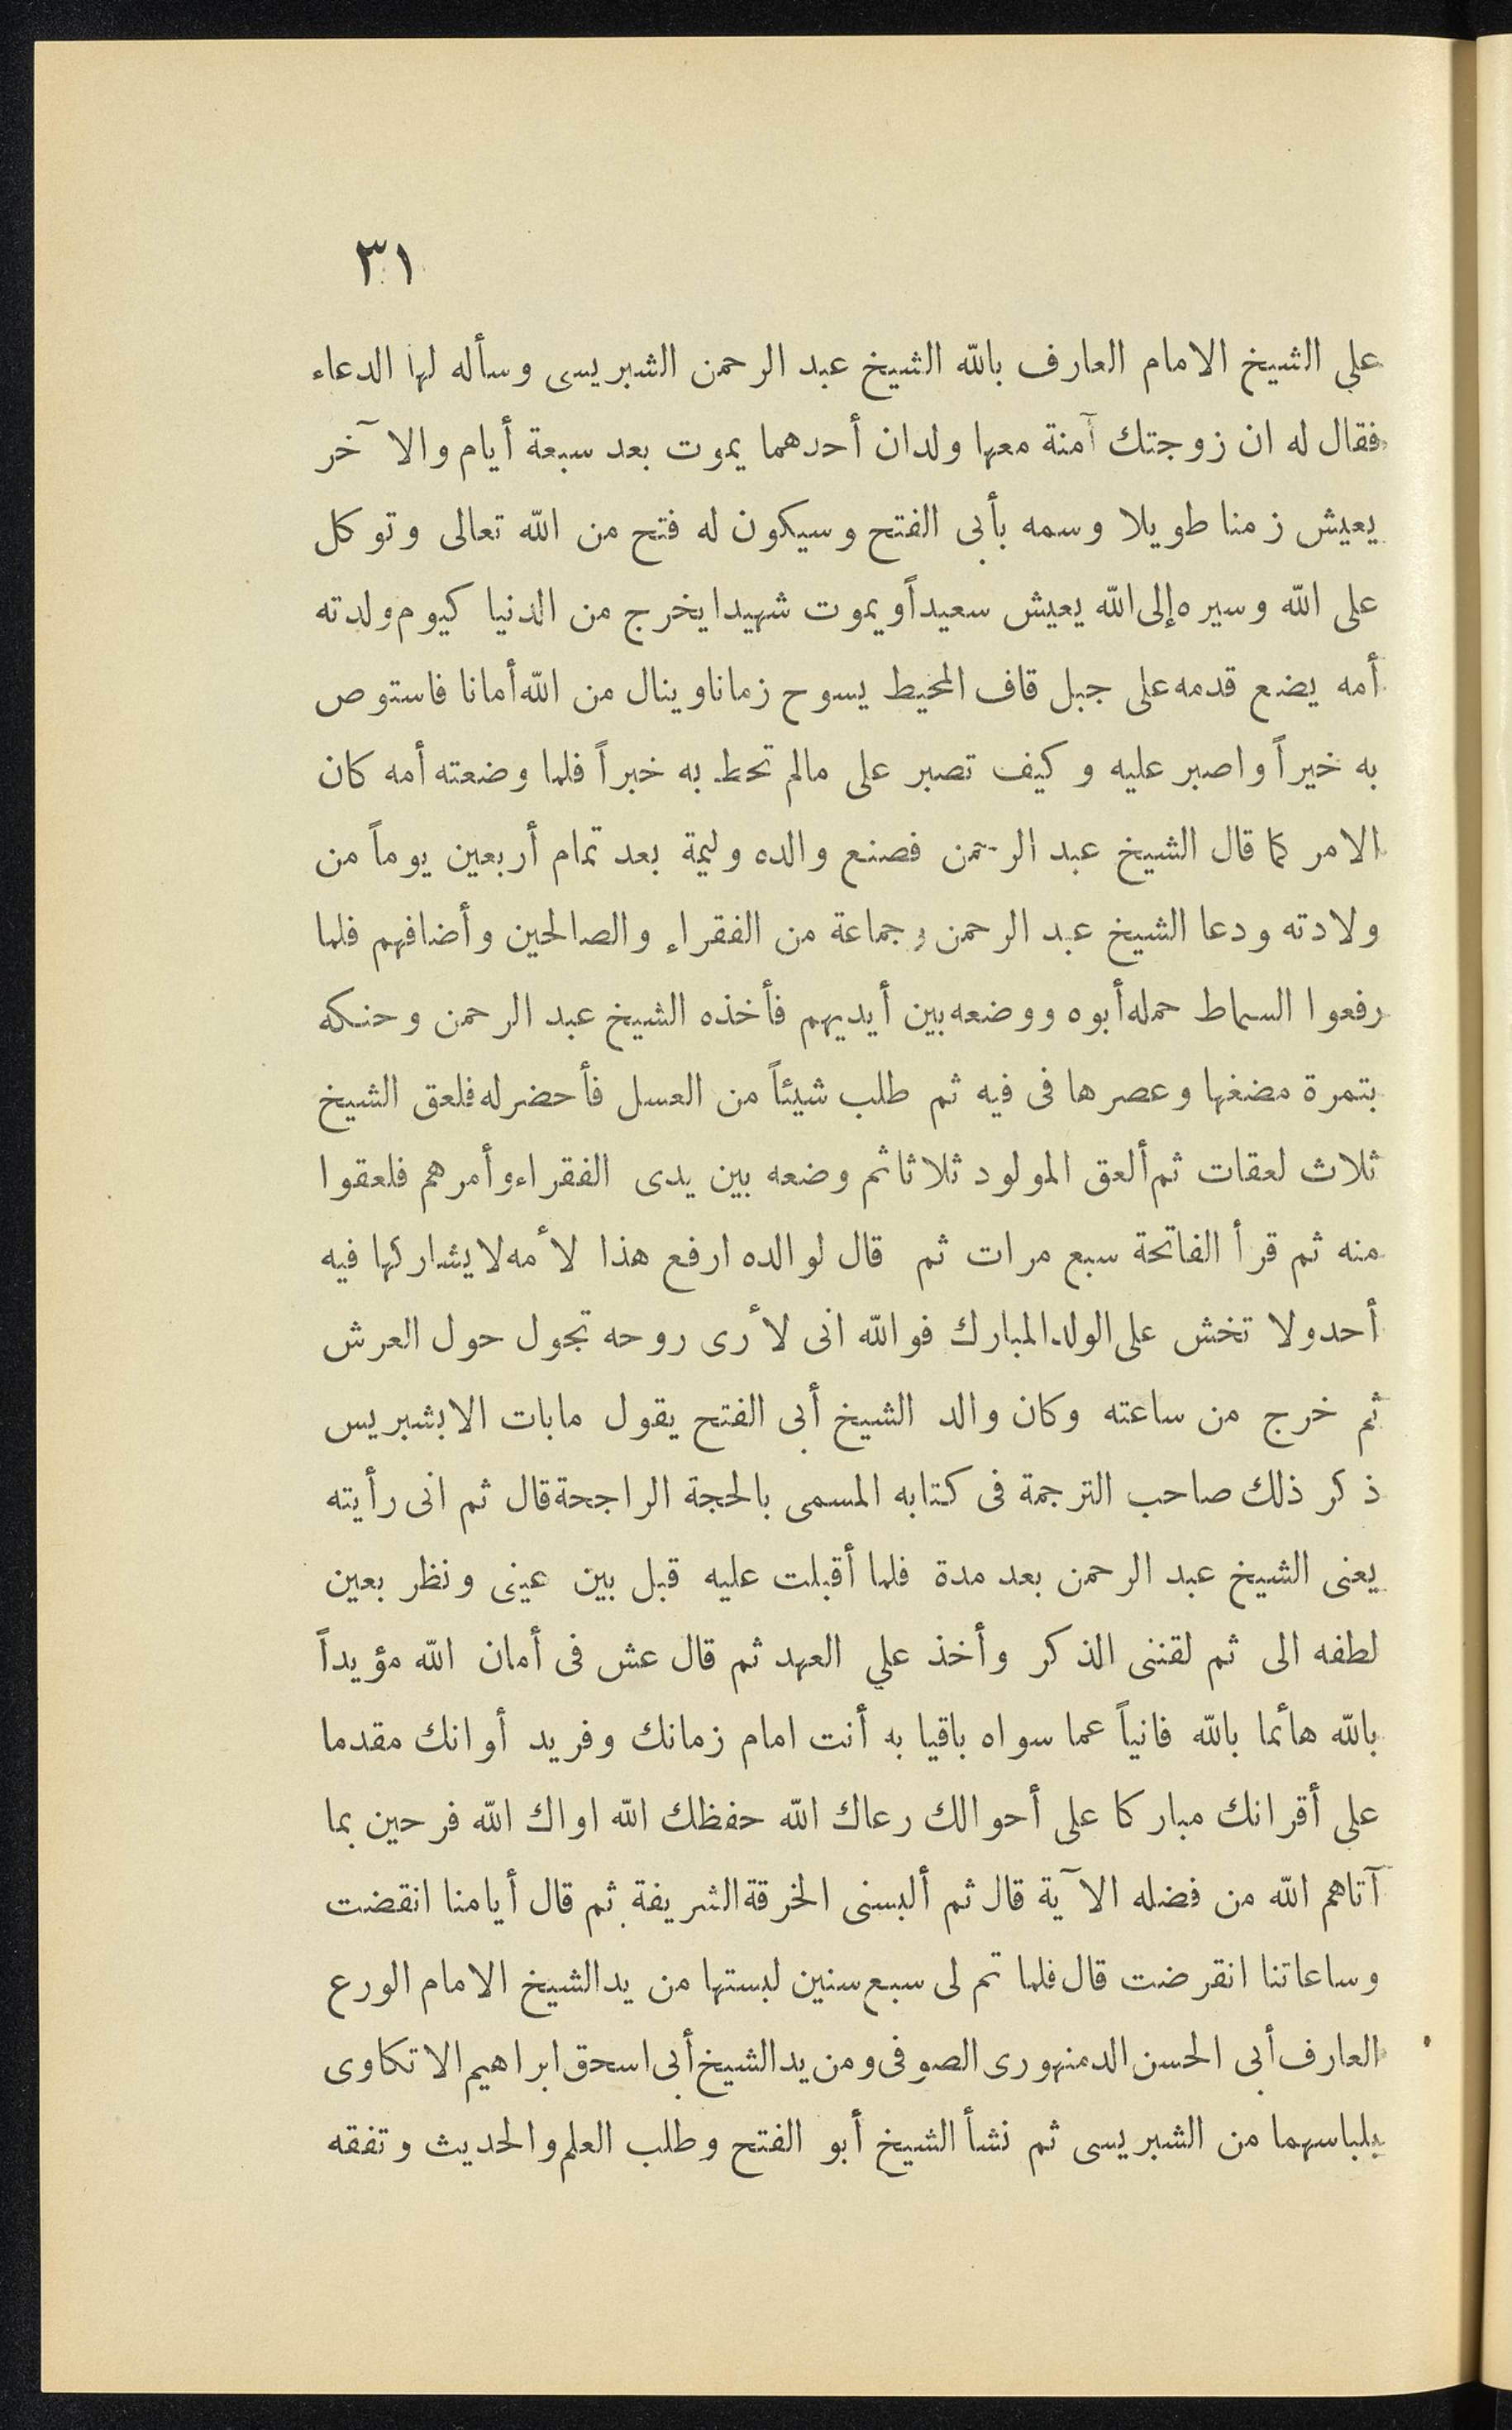 ٣١
علي الشيخ الامام العارف بالله الشيخ عبد الرحمن الشبريسى وسأله لها الدعاء
فقال له ان زوجتك آمنة معها ولدان أحدهما يموت بعد سبعة أيام والآخر
يعيش زمنا طويلا وسمه بأبى الفتح وسيكون له فتح من الله تعالى وتوكل
على الله وسيره إلى الله يعيش سعيداً ويموت شهيدا يخرج من الدنيا كيوم ولدته
أمه يضع قدمه على جبل قاف المحيط يسوح زمانا وينال من الله أمانا فاستوص
به خيراً واصبر عليه وكيف تصبر على مالم تحط به خبراً فلما وضعته أمه كان
الامر كما قال الشيخ عبد الرحمن فصنع والده وليمة بعد تمام أربعين يوماً من
ولادته ودعا الشيخ عبد الرحمن وجماعة من الفقراء والصالحين وأضافهم فلما
رفعوا السماط حمله أبوه ووضعه بين أيديهم فأخذه الشيخ عبد الرحمن وحنكه
بتمرة مضغها وعصرها فى فيه ثم طلب شيئاً من العسل فأحضر له فلعق الشيخ
ثلاث لعقات ثم ألعق المولود ثلاثا ثم وضعه بين يدى الفقراء وأمرهم فلعقوا
منه ثم قرأ الفاتحة سبع مرات ثم قال لوالده ارفع هذا لأمه لا يشاركها فيه
أحد ولا تخش على الولد المبارك فوالله انى لأرى روحه تجول حول العرش
ثم خرج من ساعته وكان والد الشيخ أبى الفتح يقول مابات الا بشبريس
ذكر ذلك صاحب الترجمة فى كتابه المسمى بالحجة الراجحة قال ثم انى رأيته
يعنى الشيخ عبد الرحمن بعد مدة فلما أقبلت عليه قبل بين عينى ونظر بعين
لطفه الى ثم لقننى الذكر وأخذ علي العهد ثم قال عش فى أمان الله مؤيداً
بالله هائما بالله فانياً عما سواه باقيا به أنت امام زمانك وفريد أوانك مقدما
على أقرانك مباركا على أحوالك رعاك الله حفظك الله اواك الله فرحين بما
آتاهم الله من فضله الآية قال ثم ألبسنى الخرقة الشريفة ثم قال أيامنا انقضت
وساعاتنا انقرضت قال فلما تم لى سبع سنين لبستها من يد الشيخ الامام الورع
العارف أبى الحسن الدمنهورى الصوفى ومن يد الشيخ أبى اسحق ابراهيم الاتكاوى
بلباسهما من الشبريسى ثم نشأ الشيخ أبو الفتح وطلب العلم والحديث وتفقه